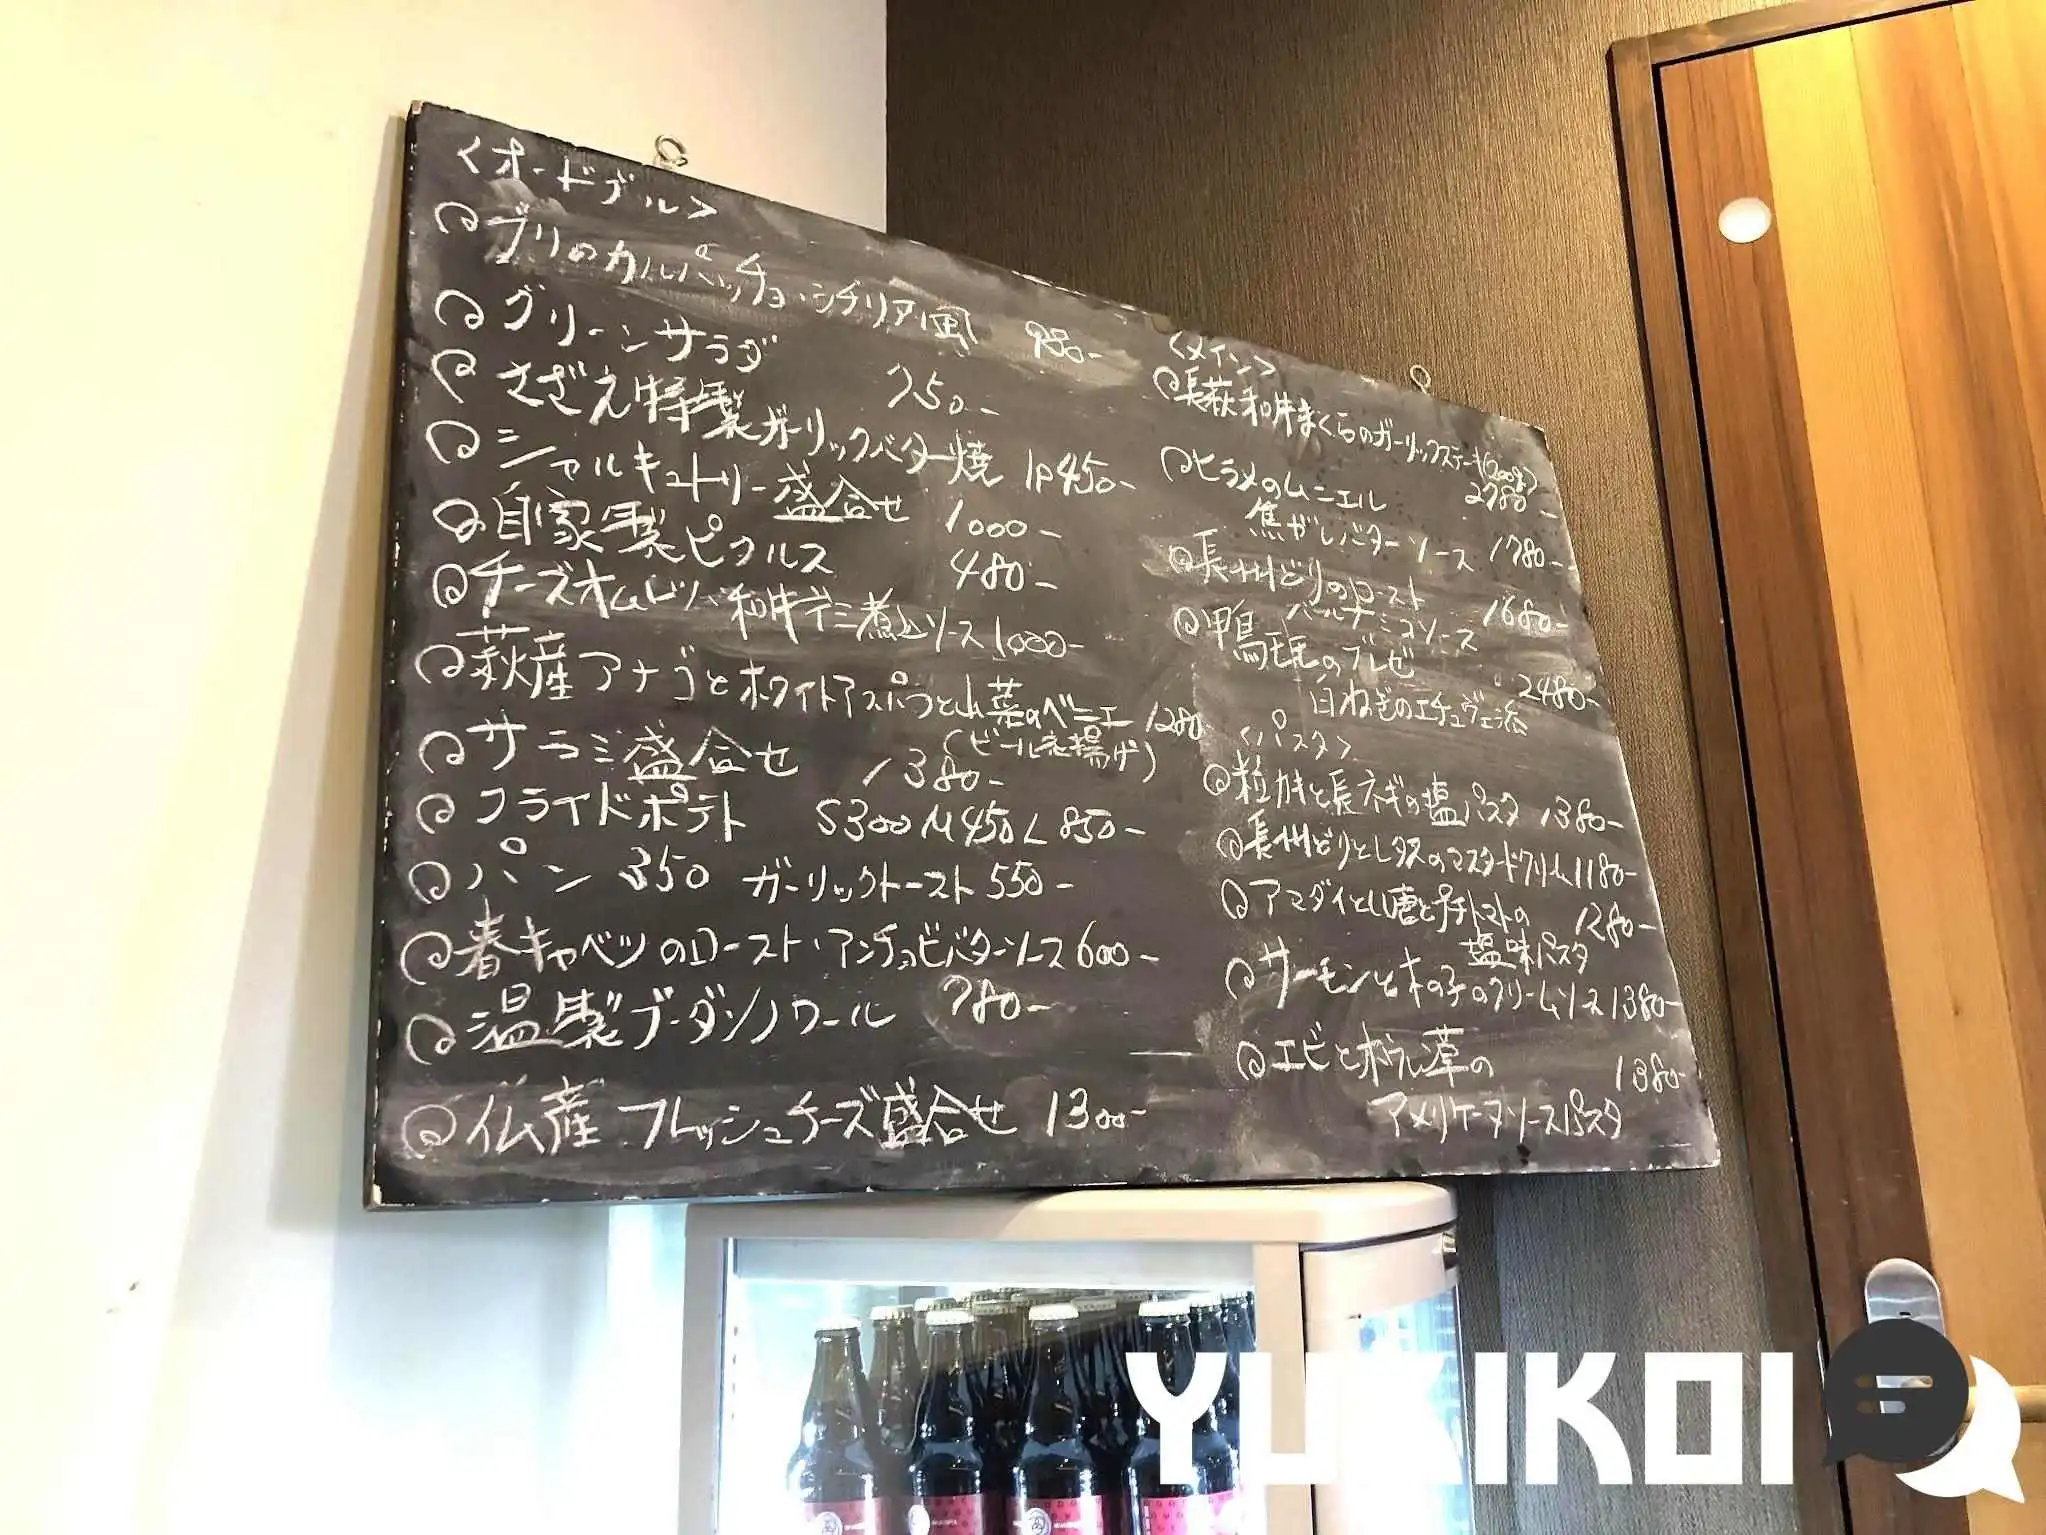 <オードブル>
ブリのカルパッチョ・シチリア風 980-
グリーンサラダ 750-
さざえ特製ガーリックバター焼 1P450-
シャルキュトリー盛合せ 1000-
自家製ピクルス 480-
チーズオムレツ 和牛デミ煮込ソース 1000-
萩産アナゴとホワイトアスパラと山菜のベニエ 1280
(ビール衣揚げ)
サラミ盛合せ 1380-
フライドポテト S300 M450 L850-
パン 350 ガーリックトースト 550-
春キャベツのロースト・アンチョビバターソース 600-
温製ブーダンノワール 780-
仏産 フレッシュチーズ盛合せ 1300-
<メイン>
長萩和牛まくらのガーリックステーキ(200g)
2780-
ヒラメのムニエル
焦がしバターソース 1780-
長州どりのロースト
バルサミコソース 1680-
鴨モモのブレゼ
白ねぎのエチュヴェ添 2480-
<パスタ>
粒カキと長ネギの塩パスタ 1380-
長州どりとレタスのマスタードクリーム 1180-
アマダイと山唐とプチトマトの 1280-
塩味パスタ
サーモンと木の子のクリームソース 1380-
エビとホウレン草の 1380-
アメリケーヌソースパスタ
YUKIKOI